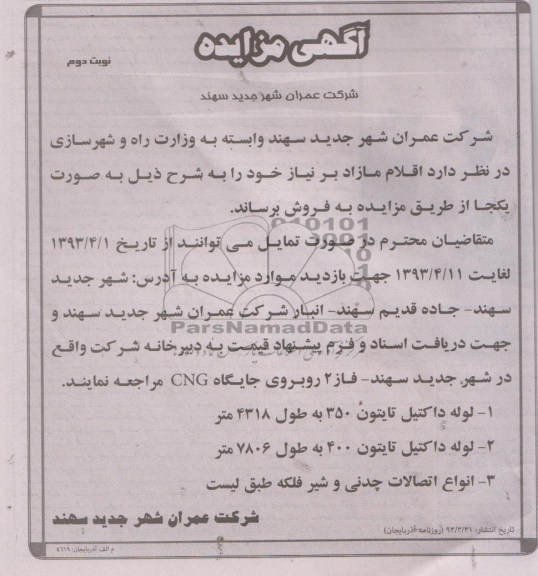 آگهی مزایده
نوبت دوم
شرکت عمران شهر جدید سهند
شرکت عمران شهر جدید سهند وابسته به وزارت راه و شهرسازی
در نظر دارد اقلام مازاد بر نیاز خود را به شرح ذیل به صورت
یکجا از طریق مزایده به فروش برساند.
متقاضیان محترم در صورت تمایل می توانند از تاریخ ۱۳۹۳/۴/۱
لغایت ۱۳۹۳/۴/۱۱ جهت بازدید موارد مزایده به آدرس: شهر جدید
سهند- جاده قدیم سهند- انبار شرکت عمران شهر جدید سهند و
ParsNamadData
جهت دریافت اسناد و فرم پیشنهاد قیمت به دبیرخانه شرکت واقع
در شهر جدید سهند- فاز۲ روبروی جایگاه CNG مراجعه نمایند.
۱- لوله داکتیل تایتون ۳۵۰ به طول ۴۳۱۸ متر
۲- لوله داکتیل تایتون ۴۰۰ به طول ۷۸۰۶ متر
۳- انواع اتصالات چدنی و شیر فلکه طبق لیست
شرکت عمران شهر جدید سهند
تاریخ انتشار: ۹۳/۳/۳۱ (روزنامه آذربایجان)
م الف آذربایجان: ۴۶۱۹